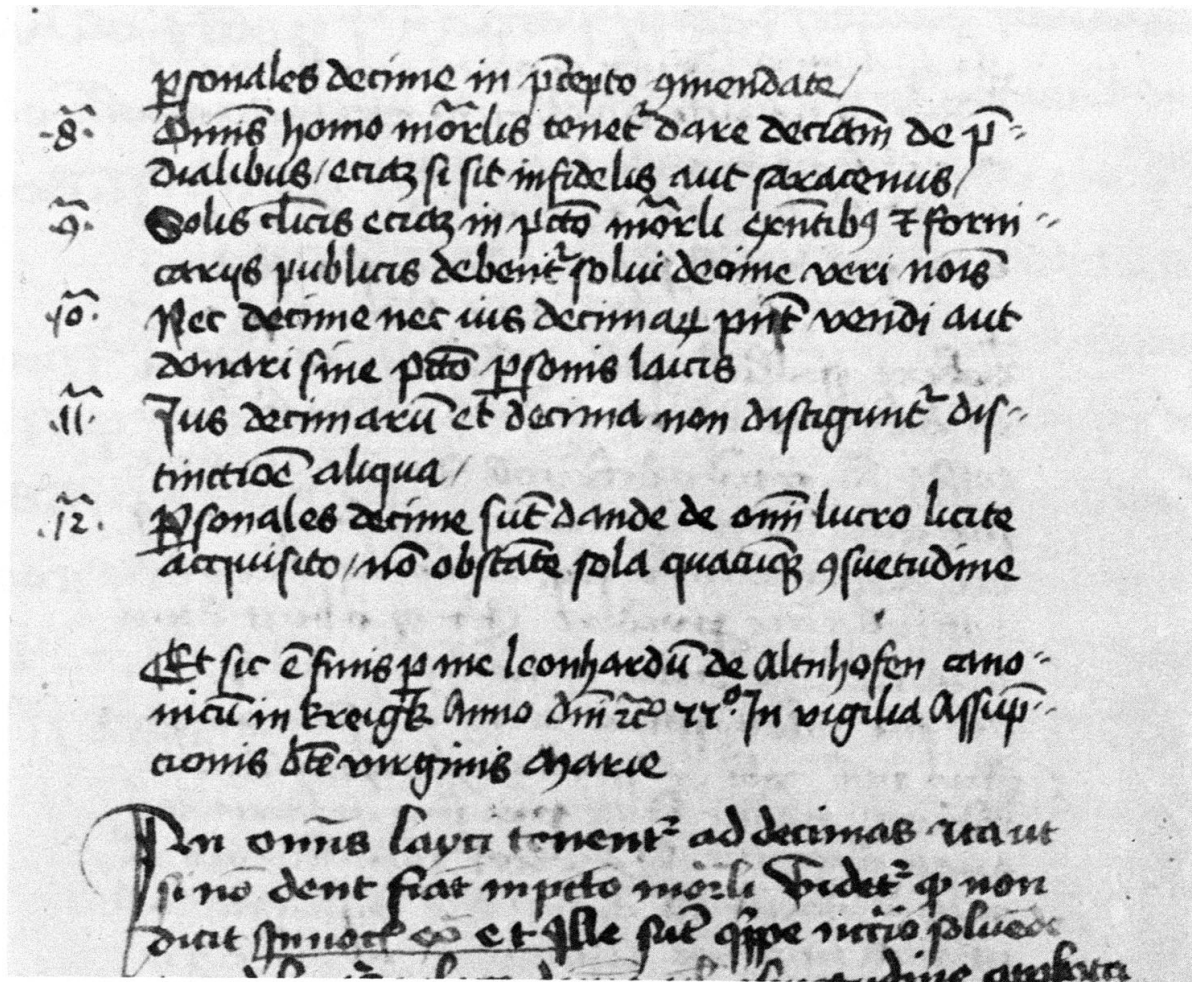 p̲sonales decime in p̄cepto ꝯmendate/
.8. Omīs homo mōrlis tenet᷑ dare deciam̄ de p̄=
dialibus/ eciaꝫ si sit infidelis aut saracenus/
.9. Solis cl̄icis eciaꝫ in pcc̄to mōrli exn̄tibꝰ ⁊ forni=
carijs publicis debent᷑ solui decime veri nois̄
.10. Nec decime nec ius decimaꝝ pn̄t vendi aut
donari sine pcc̄to ꝑsonis laicis
.11. Jus decimarū et decima non distigunt᷑ dis=
tinctiōe aliqua/
.12. ꝑsonales decime sūt dande de om̄i lucro licite
acquisito/ nō obstāte sola quacūqꝫ ꝯsuetudine
Et sic ē finis ꝑ me leonhardū de Altnhofen cano=
nicū in kreigk Anno dm̄ In vigilia Assūp=
cionis bt̄e virginis Marie
An omn̄s layci tenent᷑ ad decimas ita ut
si nō dent fiāt in pcc̄to mōrli Videt᷑ ꝙ non
dicit et Ille sūt